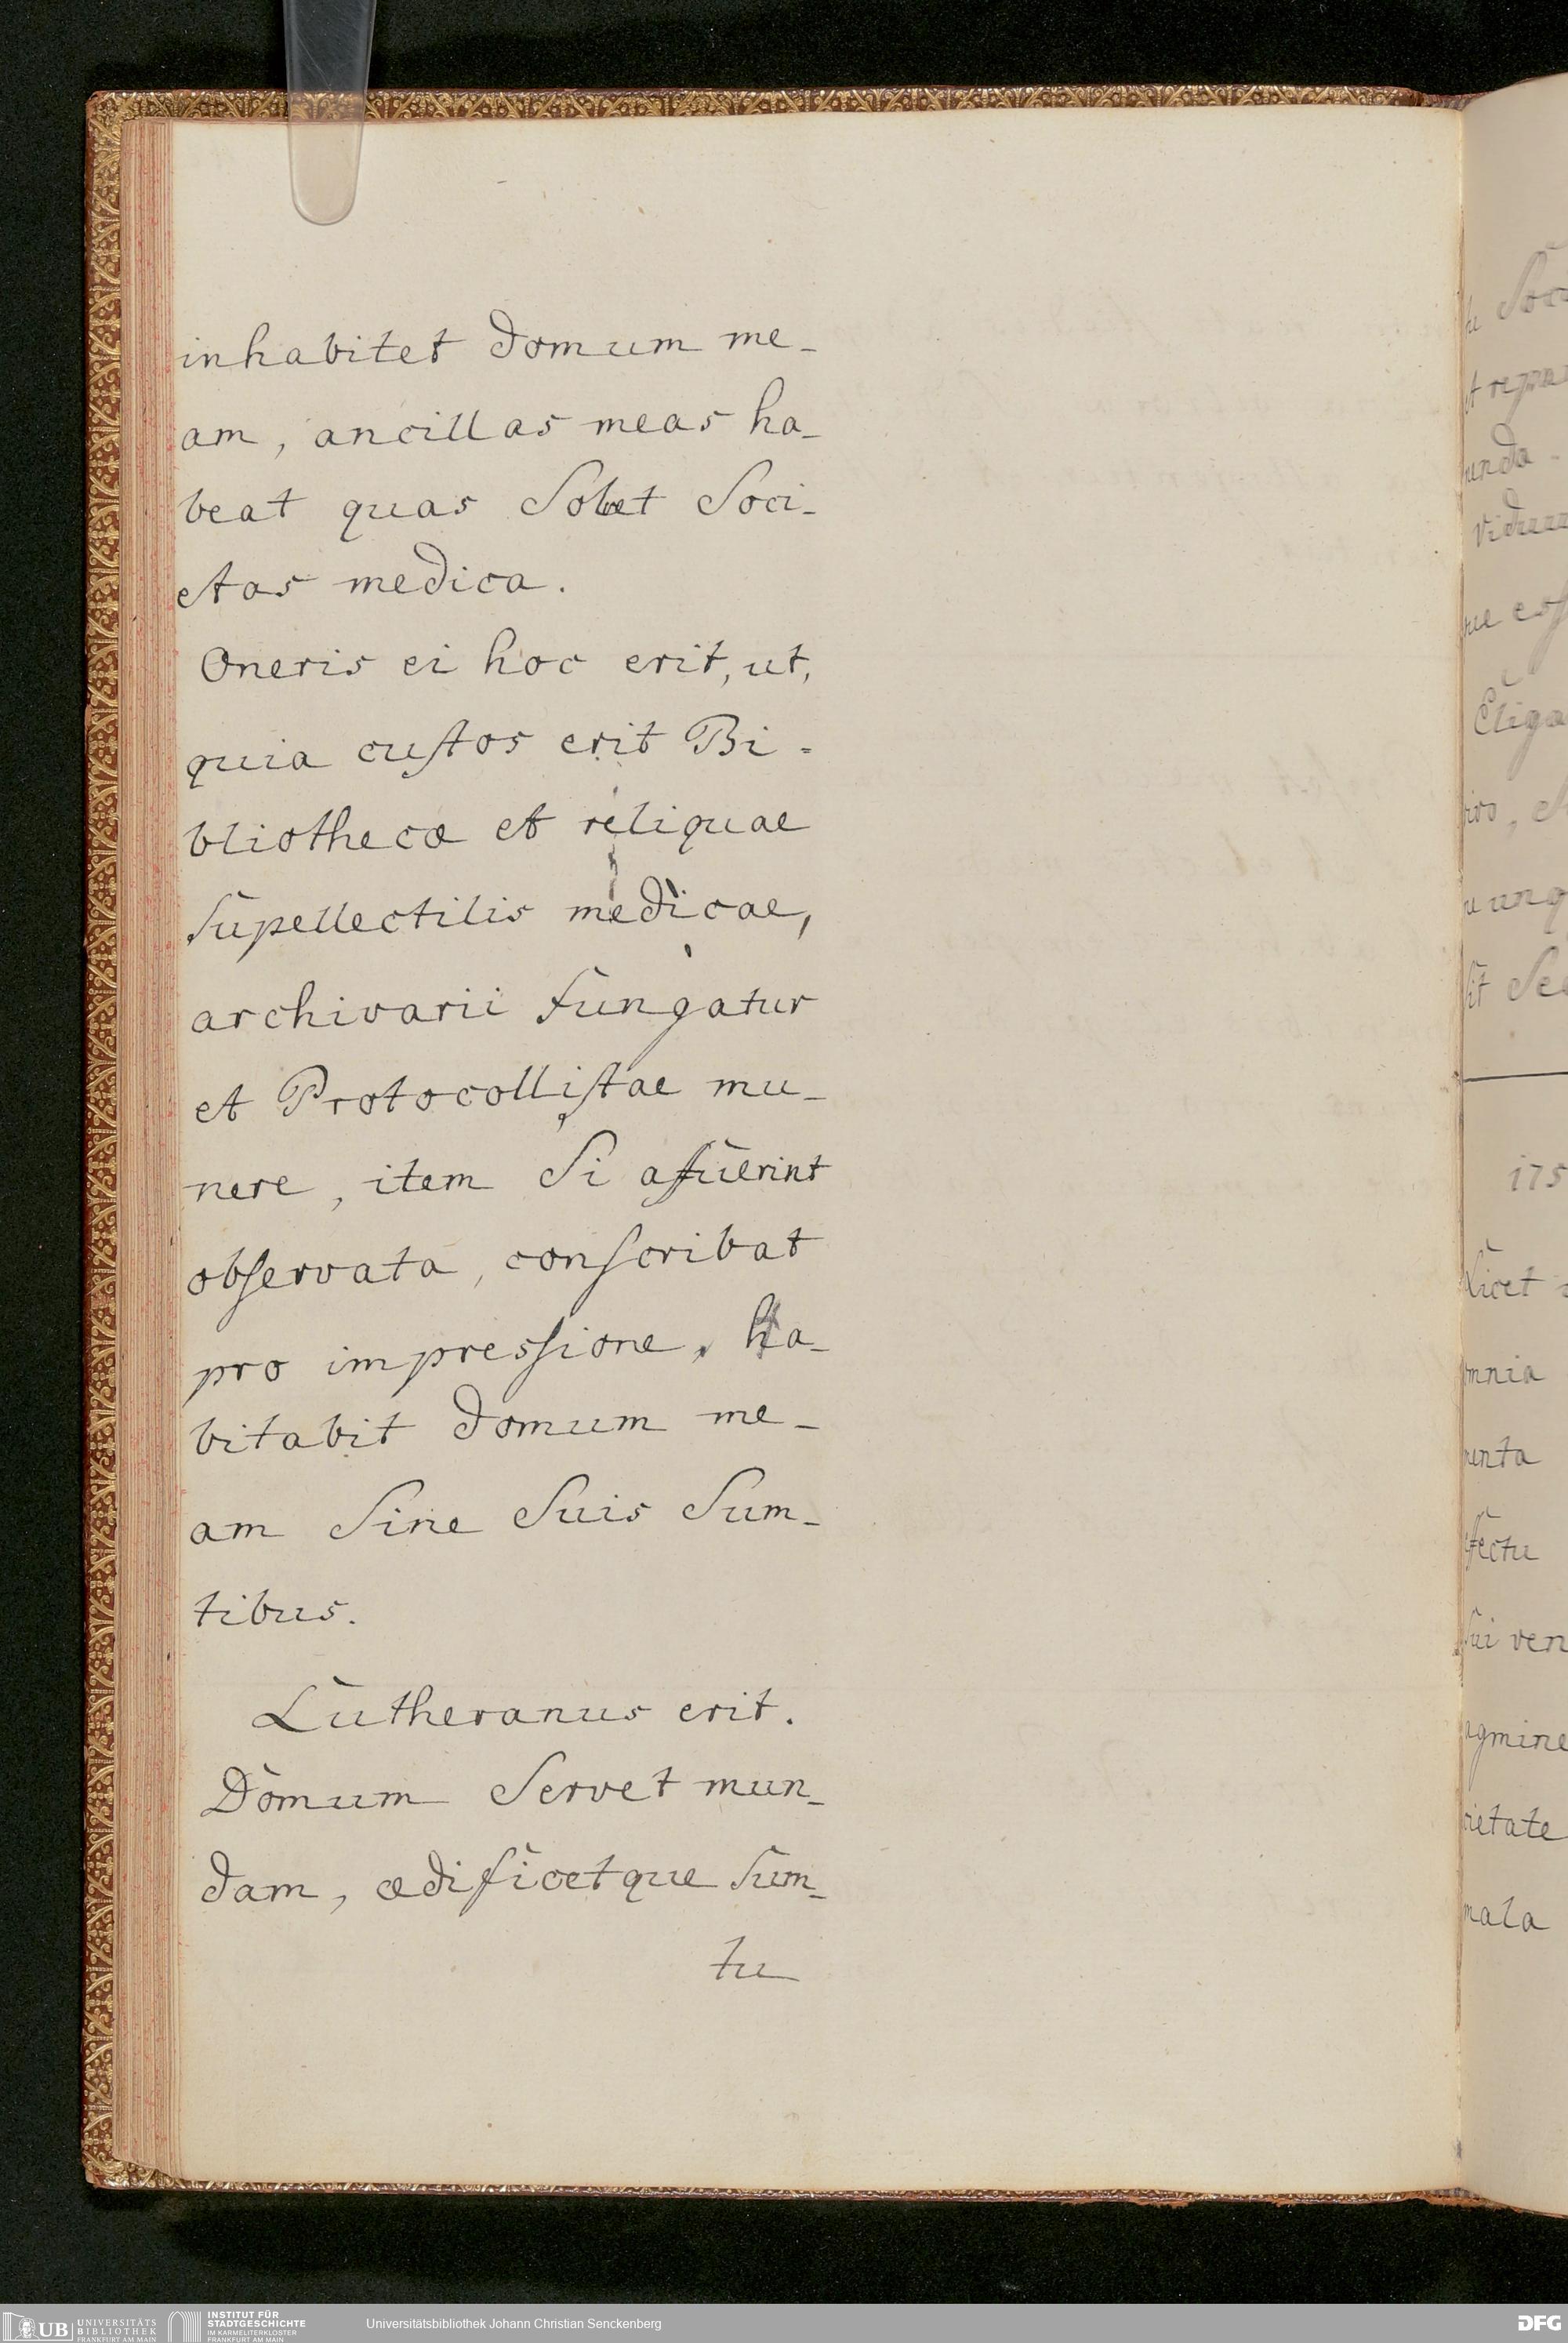 inhabitet domum me-
am, ancillas meas ha-
beat quas Solvet Soci-
etas medica.
Oneris ei hoc erit, ut,
quia custos erit Bi-
bliothecæ et reliquae
supellectilis medicae,
archivarii fungatur
et Protocollistae mu-
nere, item Si afuerint
observata, conscribat
pro impressione, ha-
bitabit domum me-
am Sine Suis Sum-
tibus.
Lutheranus erit.
Domum Servet mun-
dam, ædificetque sum-
tu
Soc
unda
Eliga
175
Licet
omnia
menta
ffectu
sui ven
agmine
cietate
mala
UB UNIVERSITÄTS BIBLIOTHEK FRANKFURT AM MAIN
INSTITUT FÜR STADTGESCHICHTE IM KARMELITERKLOSTER FRANKFURT AM MAIN
Universitätsbibliothek Johann Christian Senckenberg
DFG